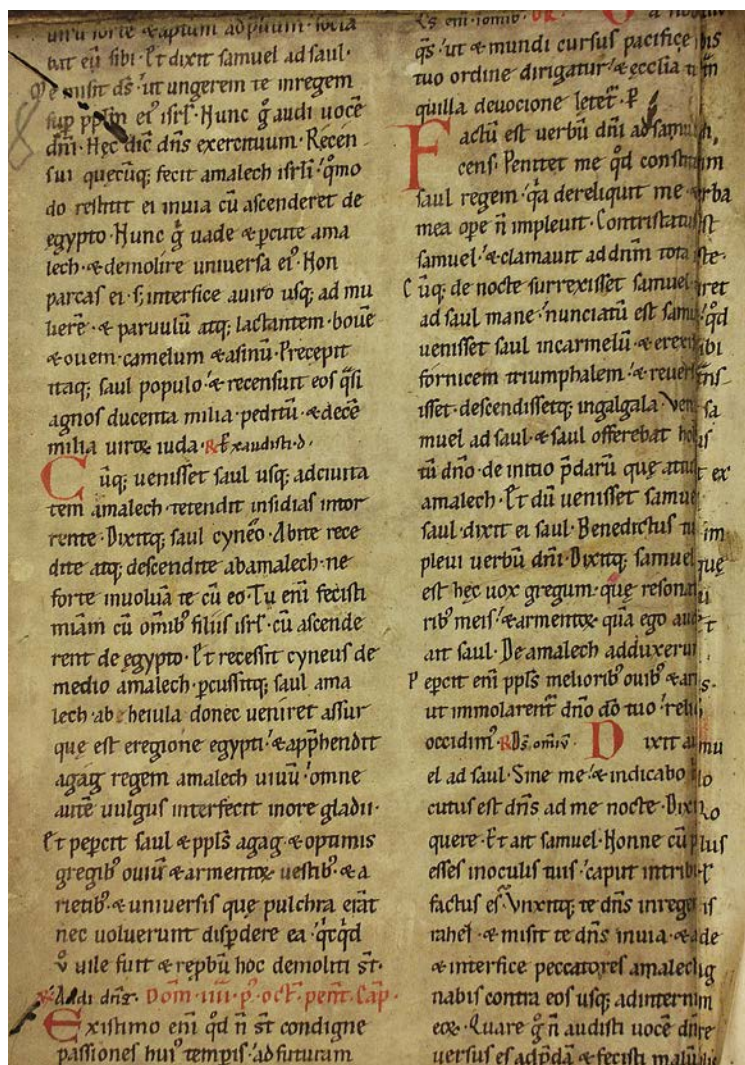 uirū forte ⁊ aptum ad p̄lium · socia
bat eū sibi · Et dixit samuel ad saul ·
Me misit dn̄s · ut ungerem te inregem
sup̄ pp̄lm ei᷒ isrl̄ · Hunc g̊ audi uocē
dn̄i · Hęc dic̄ dn̄s exercituum · Recen
sui quęcūq; fecit amalech isrl̄i · qͦmo
do restitit ei inuia cū ascenderet de
egypto · Hunc g̊ uade ⁊ ꝑcute ama
lech · ⁊ demolire uniuersa ei᷒ · Non
parcas ei · s; interfice auiro usq; ad mu
lierē · ⁊ paruulū atq; lactantem · bouē
⁊ ouem · camelum ⁊ asinū · Precepit
itaq; saul populo · ⁊ recensuit eos qͣsi
agnos ducenta milia peditū · ⁊ decē
milia uiroꝝ iuda · R̄ Exaudisti · d ·
Cūq; uenisset saul usq; adciuita
tem amalech · tetendit insidias intor
rente · Dixitq; saul cyneo · Abite rece
dite atq; descendite abamalech · ne
forte inuoluā te cū eo · Tu enī fecisti
miām cū omīb᷒ filiis isrl̄ · cū ascende
rent de ęgypto · Et recessit cyneus de
medio amalech · ꝑcussitq; saul ama
lech · ab heiula donec ueniret assur
quę est eregione egypti · ⁊ app̄hendit
agag regem amalech uiuū · omne
autē uulgus interfecit inore gladii ·
Et peꝑcit saul ⁊ pp̄ls agag · ⁊ optimis
gregib᷒ ouiū ⁊ armentoꝝ uestib᷒ · ⁊ a
rietib᷒ · ⁊ uniuersis quę pulchra erāt
nec uoluerunt disꝑdere ea · qͥcqͥd
ů uile fuit ⁊ rep̄bū hoc demoliti st̄ ·
R̄ Audi dn̄e · Dōm · iiii · p᷒ oct̄ · pent̄ · Cap̄ ·
Existimo enī qd̄ n̄ st̄ condigne
passiones hui᷒ temporis · ad futuram
qs̄ · ut ⁊ mundi cursus pacifice
tuo ordine dirigatur · ⁊ ęcclīa
quilla deuocione letet᷑ · P
Factū est uerbū dn̄i ad samu
cens · Penitet me qd̄ constit
saul regem · qͥa dereliquit me · ⁊ uerba
mea ope n̄ impleuit · Contristatus
samuel · ⁊ clamauit ad dn̄m tota
Cūq; de nocte surrexisset samuel
ad saul mane · nunciatū est samu qd̄
uenisset saul incarmelū · ⁊ erex ibi
fornicem triumphalem · ⁊ reuers
isset · descendissetq; ingalgala · Ven sa
muel ad saul · ⁊ saul offerebat ho
tū dn̄o · de initio p̄darū quę attu ex
amalech · Et dū uenisset samue
saul · dixit ei saul · Benedictus tu im
pleui uerbū dn̄i · Dixitq; samuel quę
est hęc uox gregum · quę resona
rib᷒ meis · ⁊ armentoꝝ quā ego au
ait saul · De amalech adduxerun
Peꝑcit enī pp̄ls meliorib᷒ ouib᷒ ⁊ ar
ut immolarent᷑ dn̄o dō tuo · reli
occidim᷒ · R̄ Ds̄ omīū · Dixit aū mu
el ad saul · Sine me · ⁊ indicabo lo
cutus est dn̄s ad me nocte · Dixi lo
quere · Et ait samuel · Nonne cū plus
esses inoculis tuis · caput intrib
factus es · Vnxitq; te dn̄s inrege is
rahel · ⁊ misit te dn̄s inuia · ⁊ ade
⁊ interfice peccatores amalech ig
nabis contra eos usq; adinternim
eoꝝ · Quare g̊ n̄ audisti uocē dn̄i re
uersus es adp̄dā · ⁊ fecisti malū